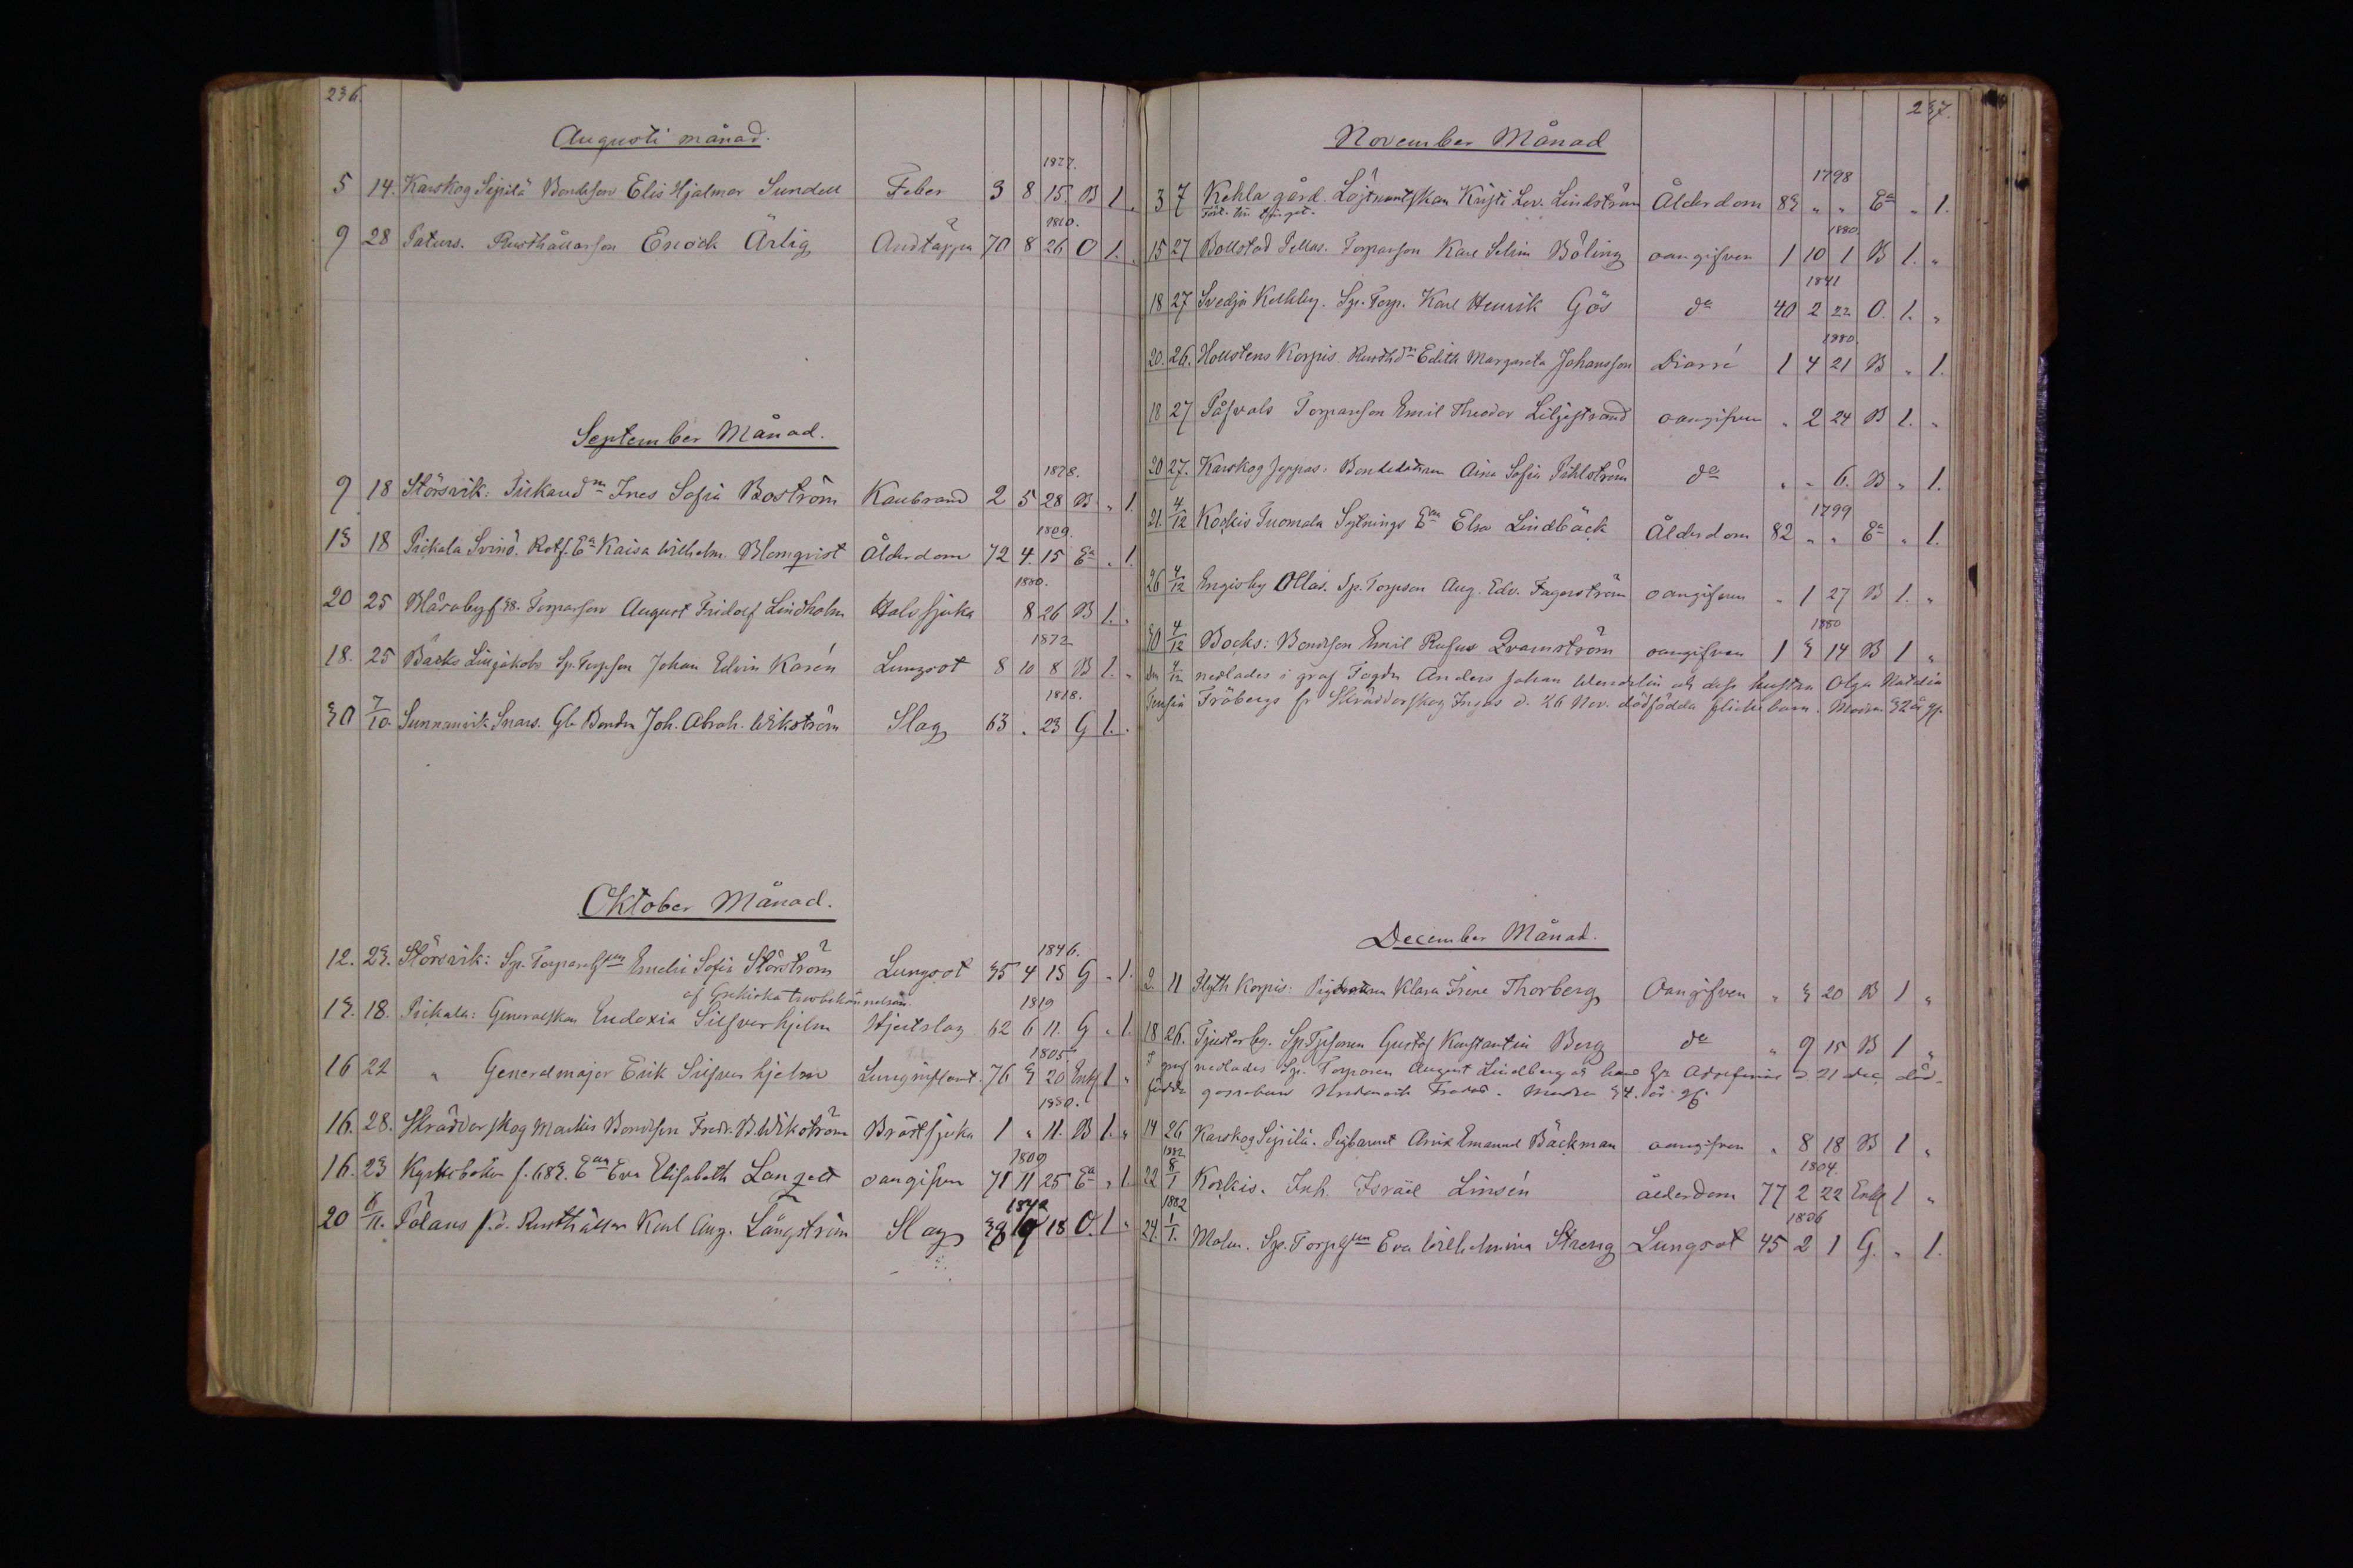 236.
Augusti månad.
1877.
5 14. Karskog Sipilä Bondeson Elis Hjalmar Sundell Feber 3 8 15. B 1 „
1810.
9 28 Paturs. Rusthållarson Enock Ärlig Andtäppa 70 8 26 O 1. „
September Månad.
1878.
9 18 Störsvik: Fiskared:n Ines Sofia Boström Kaubrand 2 5 28 B „ 1.
1809.
13 18 Pickala Svinö. Rotf. E:a Kaisa Wilhelm. Blomqvist Ålderdom 72 4. 15 E:a „ 1.
1880.
20 25 Blåsaby f 38. Torparson August Fridolf Lindholm Halssjuka 8 26 B 1. „
1872
18. 25 Bäcks Sp. Torpson Johan Edvin Karén Lungsot 8 10 8 B 1. „
1818.
30 7/10. Sunnanvik Snars. Gb. Bonden Joh. Abrah. Wikström Slag 63 „ 23 G 1. „
Oktober Månad.
1846.
12. 23. Störsvik: Sp. Emelie Sofia Störström Lungsot 35 4 15 G „ 1.
af Grekiska trosbekännelsen
1819
13. 18. Pickala: Generalskan Eudoxia Silfverhjelm Hjertslag 62 6 11. G „ 1.
1805
16 22 „ Generalmajor Erik Silfverhjelm Lunginflam̄t. 76 3 20 Enkl 1 „
1880.
16. 28. Skräddarskog Markus Bondson Fredr. B. Wikström Bröstsjuka 1 „ 11. B 1. „
1809
16. 23 Kyrkoboken f. 683. E:an Eva Elisabeth Langell oangifven 71 11 25 E:a „ 1.
1842
20 6/11. Pölans f.d. Rusthållarn Karl Aug. Långström Slag 39 18 O. 1 „
237.
November Månad
1798
3 7 Kehla gård. Löjtnantskan Kristi Lov. Lindström Ålderdom 83 „ „ E:a „ 1.
1880.
15 27 Bollstad Pellas. Torparson Karl Selim Böling oangifven 1 10 1 B 1. „
1841
18 27 Svedja Kelkby. Sp. Torp. Karl Henrik Gös d:o 40 2 22 O. 1. „
1880.
20. 26. Hollstens Korpis. Rusthd:n Edith Margareta Johansson Diarré 1 4 21 B „ 1.
18 27 Påsvals Torparson Emil Theodor Liljestrand oangifven „ 2 24 B 1. „
20 27. Karskog Jeppas: Bondedottren Aina Sofia Pihlström d:o „ „ 6. B „ 1.
1799
21. 4/12 Korkis Tuomola Sytnings E:an Elsa Lindbäck Ålderdom 82 „ „ E:a „ 1.
26 4/12 Engisby Ollas. Sp. Torpson Aug. Edv. Fagerström oangifven „ 1 27 B 1. „
1880
30 4/12 Bocks: Bondson Emil Rufus Qvarnström oangifven 1 3 14 B 1 „
den 4/12 nedlades i graf Fogden Anders Johan Wendelin och dess hustru Olga Natalia
Fröbergs fr Skräddarskog Ingås d. 26 Nov. dödfödda flickebarn. Modren 32 år gl.
December Månad.
2 11 Flyth Korpis: Pigdottren Klara Irene Thorberg Oangifven „ 3 20 B 1 „
18 26. Tjusterby. Sp. Gustaf Konstantin Berg d:o „ 9 15 B 1 „
I graf nedlades Sp. Torparen August Lindberg och hans d. 21 dec. död-
födda gossebarn. Modren 34. år
14 26 Karskog Sipilä. Pigbarnet Arvid Emanuel Bäckman oangifven „ 8 18 B 1 „
1882 1804.
22 8/1 Korkis. Inh. Israël Linsén ålderdom 77 2 22 Enkl 1 „
1882 1836
24. 1/1. Malm. Sp. Eva Wilhelmina Streng Lungsot 45 2 1 G. „ 1.